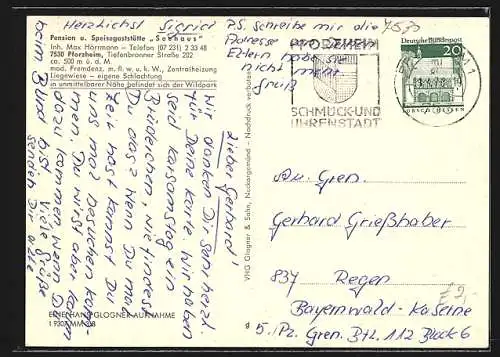 Herzlichst Sigrid
Pension u. Speisegaststätte „Seehaus"
Inh. Max Hörrmann – Telefon (07 231) 2 33 48
7530 Pforzheim, Tiefenbronner Straße 202
ca. 500 m ü. d. M.
mod. Fremdenz. m. fl. w. u. k. W., Zentralheizung
Liegewiese – eigene Schlachtung
in unmittelbarer Nähe befindet sich der Wildpark
P.S. Schreibe mir die
Adresse von Deinen
Eltern habe
nicht mehr
Gruß
Lieber Gerhard!
Wir danken Dir ganz herzl.
für Deine Karte. Wir haben
Du das? Wenn Du mal
Zeit hast kannst Du
uns mal besuchen kom-
men. Du wirst aber kaum
dazu kommen wenn Du
beim Bund bist. Viele Grüße
senden Dir alle
EINE HANS GLOGNER-AUFNAHME
VHG Glogner & Sohn, Neckargemünd - Nachdruck verboten
PFORZHEIM
SCHMUCK-UND
UHRENSTADT
Deutsche Bundespost
20
An Gren.
Gerhard Grießhaber
837 Regen
Bayernwald-Kaserne
5./Pz. Gren. Btl. 112 Block 6